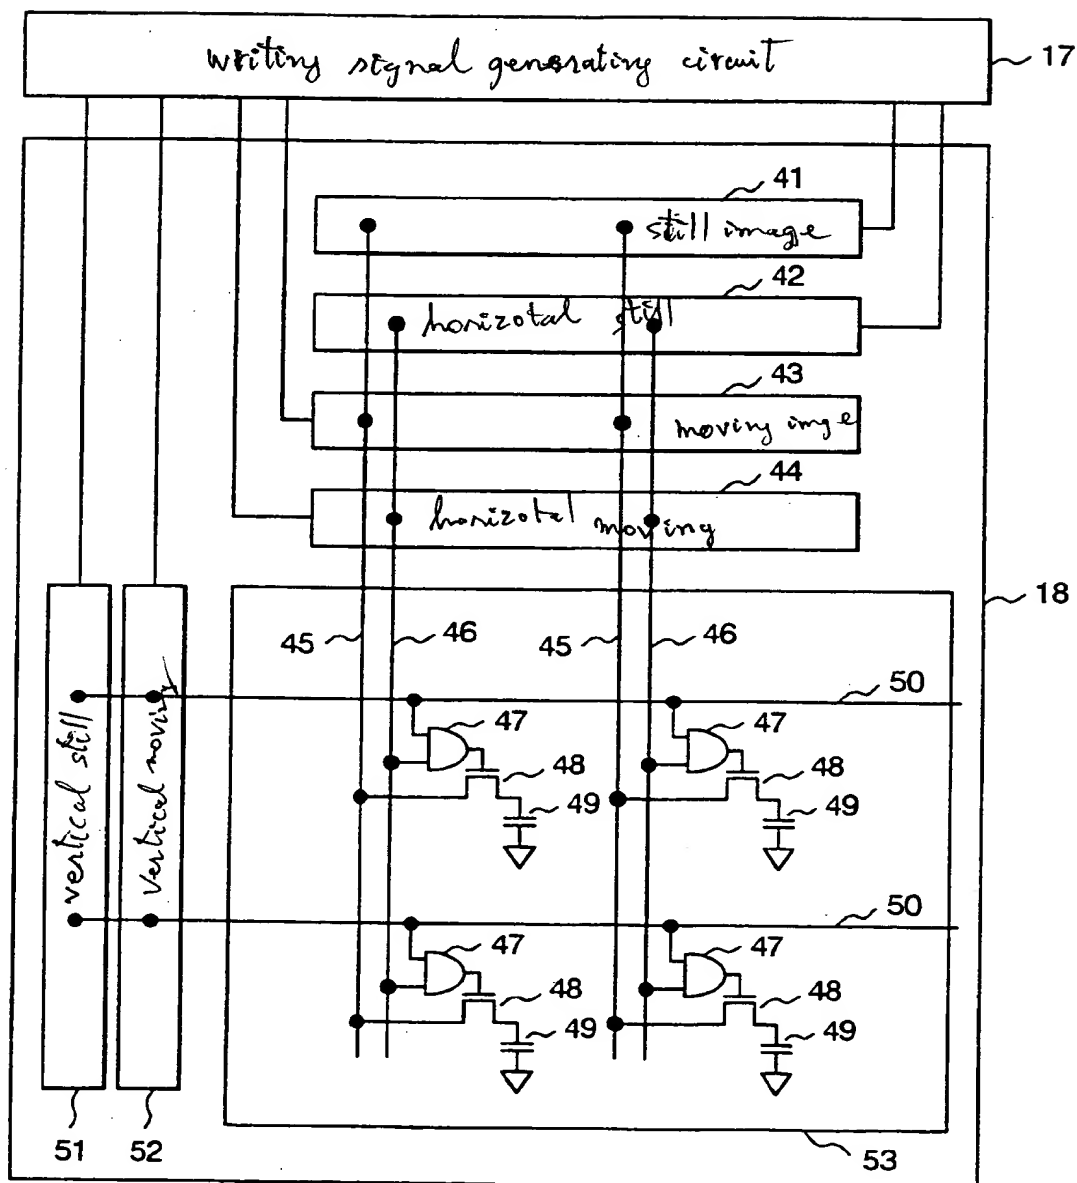 writing signal generating circuit
17
41
still image
42
horizotal still
43
moving imge
44
horizotal moving
18
45 46 45 46
50
47 47
48 48
49 49
vertical still
vertical moving
50
47 47
48 48
49 49
51 52
53